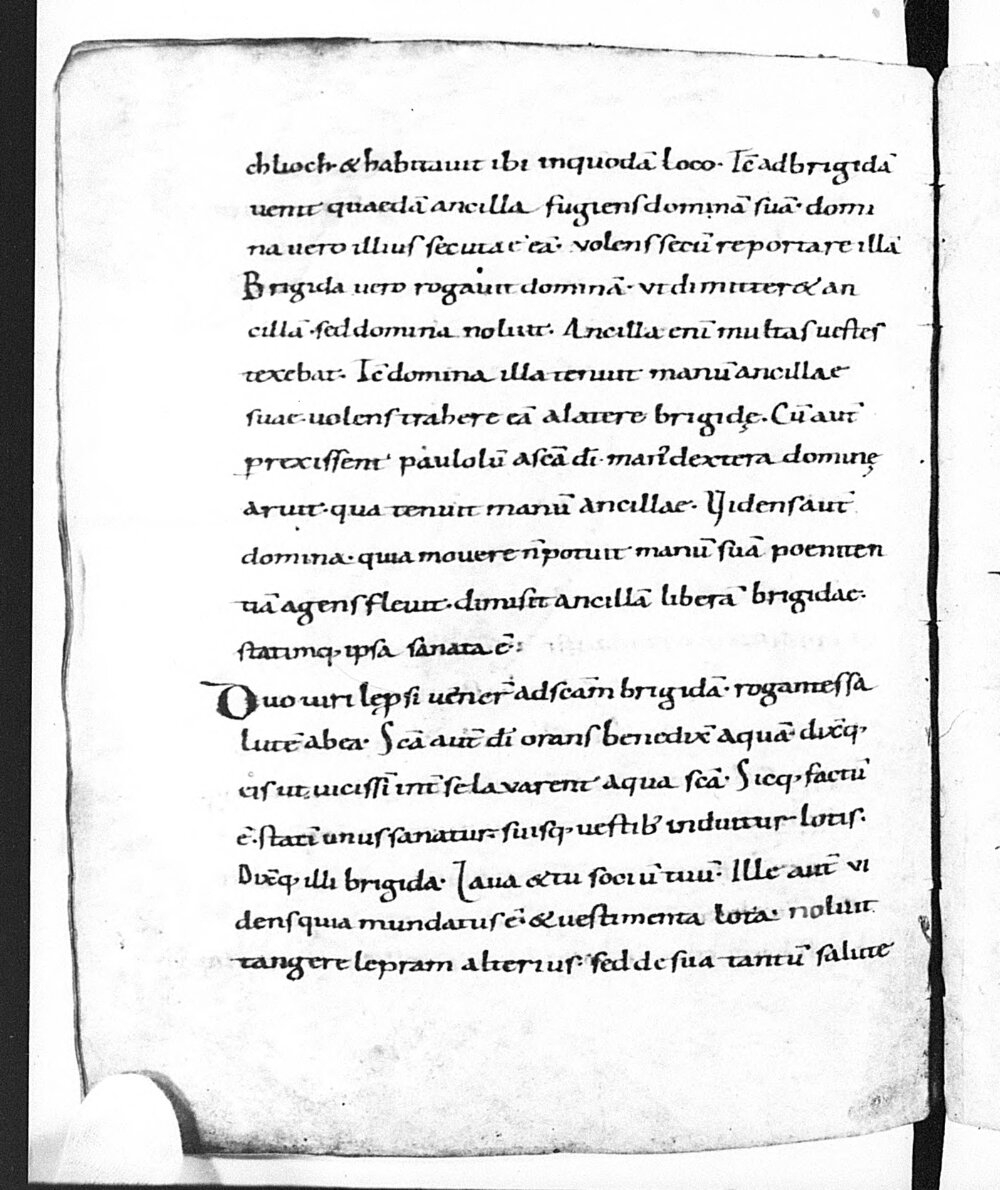 chlioch· & habitauit ibi inquodā loco· Tc̄ adbrigidā
uenit quaedā ancilla fugiens dominā suā· domi
na uero illius secuta ē eā· volens secū reportare illā
Brigida uero rogauit dominā· vt dimitter& an
cillā· sed domina noluit· Ancilla enī multas uestes
texebat· Tc̄ domina illa tenuit manū ancillae
suae· uolens trahere eā alatere brigidę. Cū aut̄
prexissent paululū ascā dī· man' dextera dominę
aruit· qua tenuit manū ancillae· Uidens aut̄
domina· quia mouere n̄ potuit manū suā poeniten
tiā agens fleuit· dimisit ancillā liberā brigidae·
statimq; ipsa sanata ē:·
Duo uiri lepsi uener̄ ad scam̄ brigidā· rogantes sa
lutē abea· Scā aut̄ dī orans benedix̄ aquā· dix̄q;
eis ut uicissī int̄ se lavarent aqua scā· Sicq; factū
ē· statī unus sanatur· suisq; uestib; induitur lotis·
Dix̄q; illi brigida· Laua & tu sociū tuū· Ille aut̄ vi
dens quia mundatus ē· & uestimenta lota· noluit
tangere lepram alterius· sed de sua tantū salute